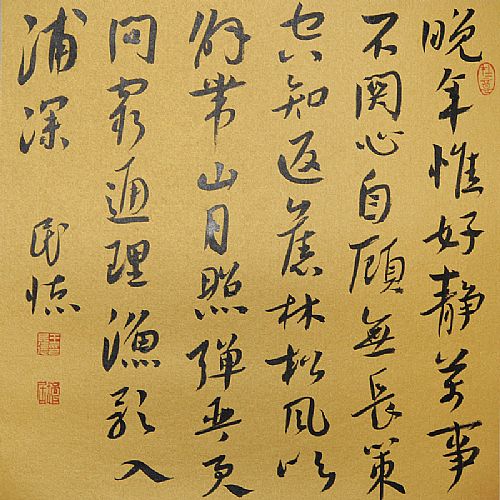 晚年惟好静萬事
不関心自顧無長策
空知返舊林松风吹
解帶山月照彈琴君
問窮通理漁歌入
浦深
民